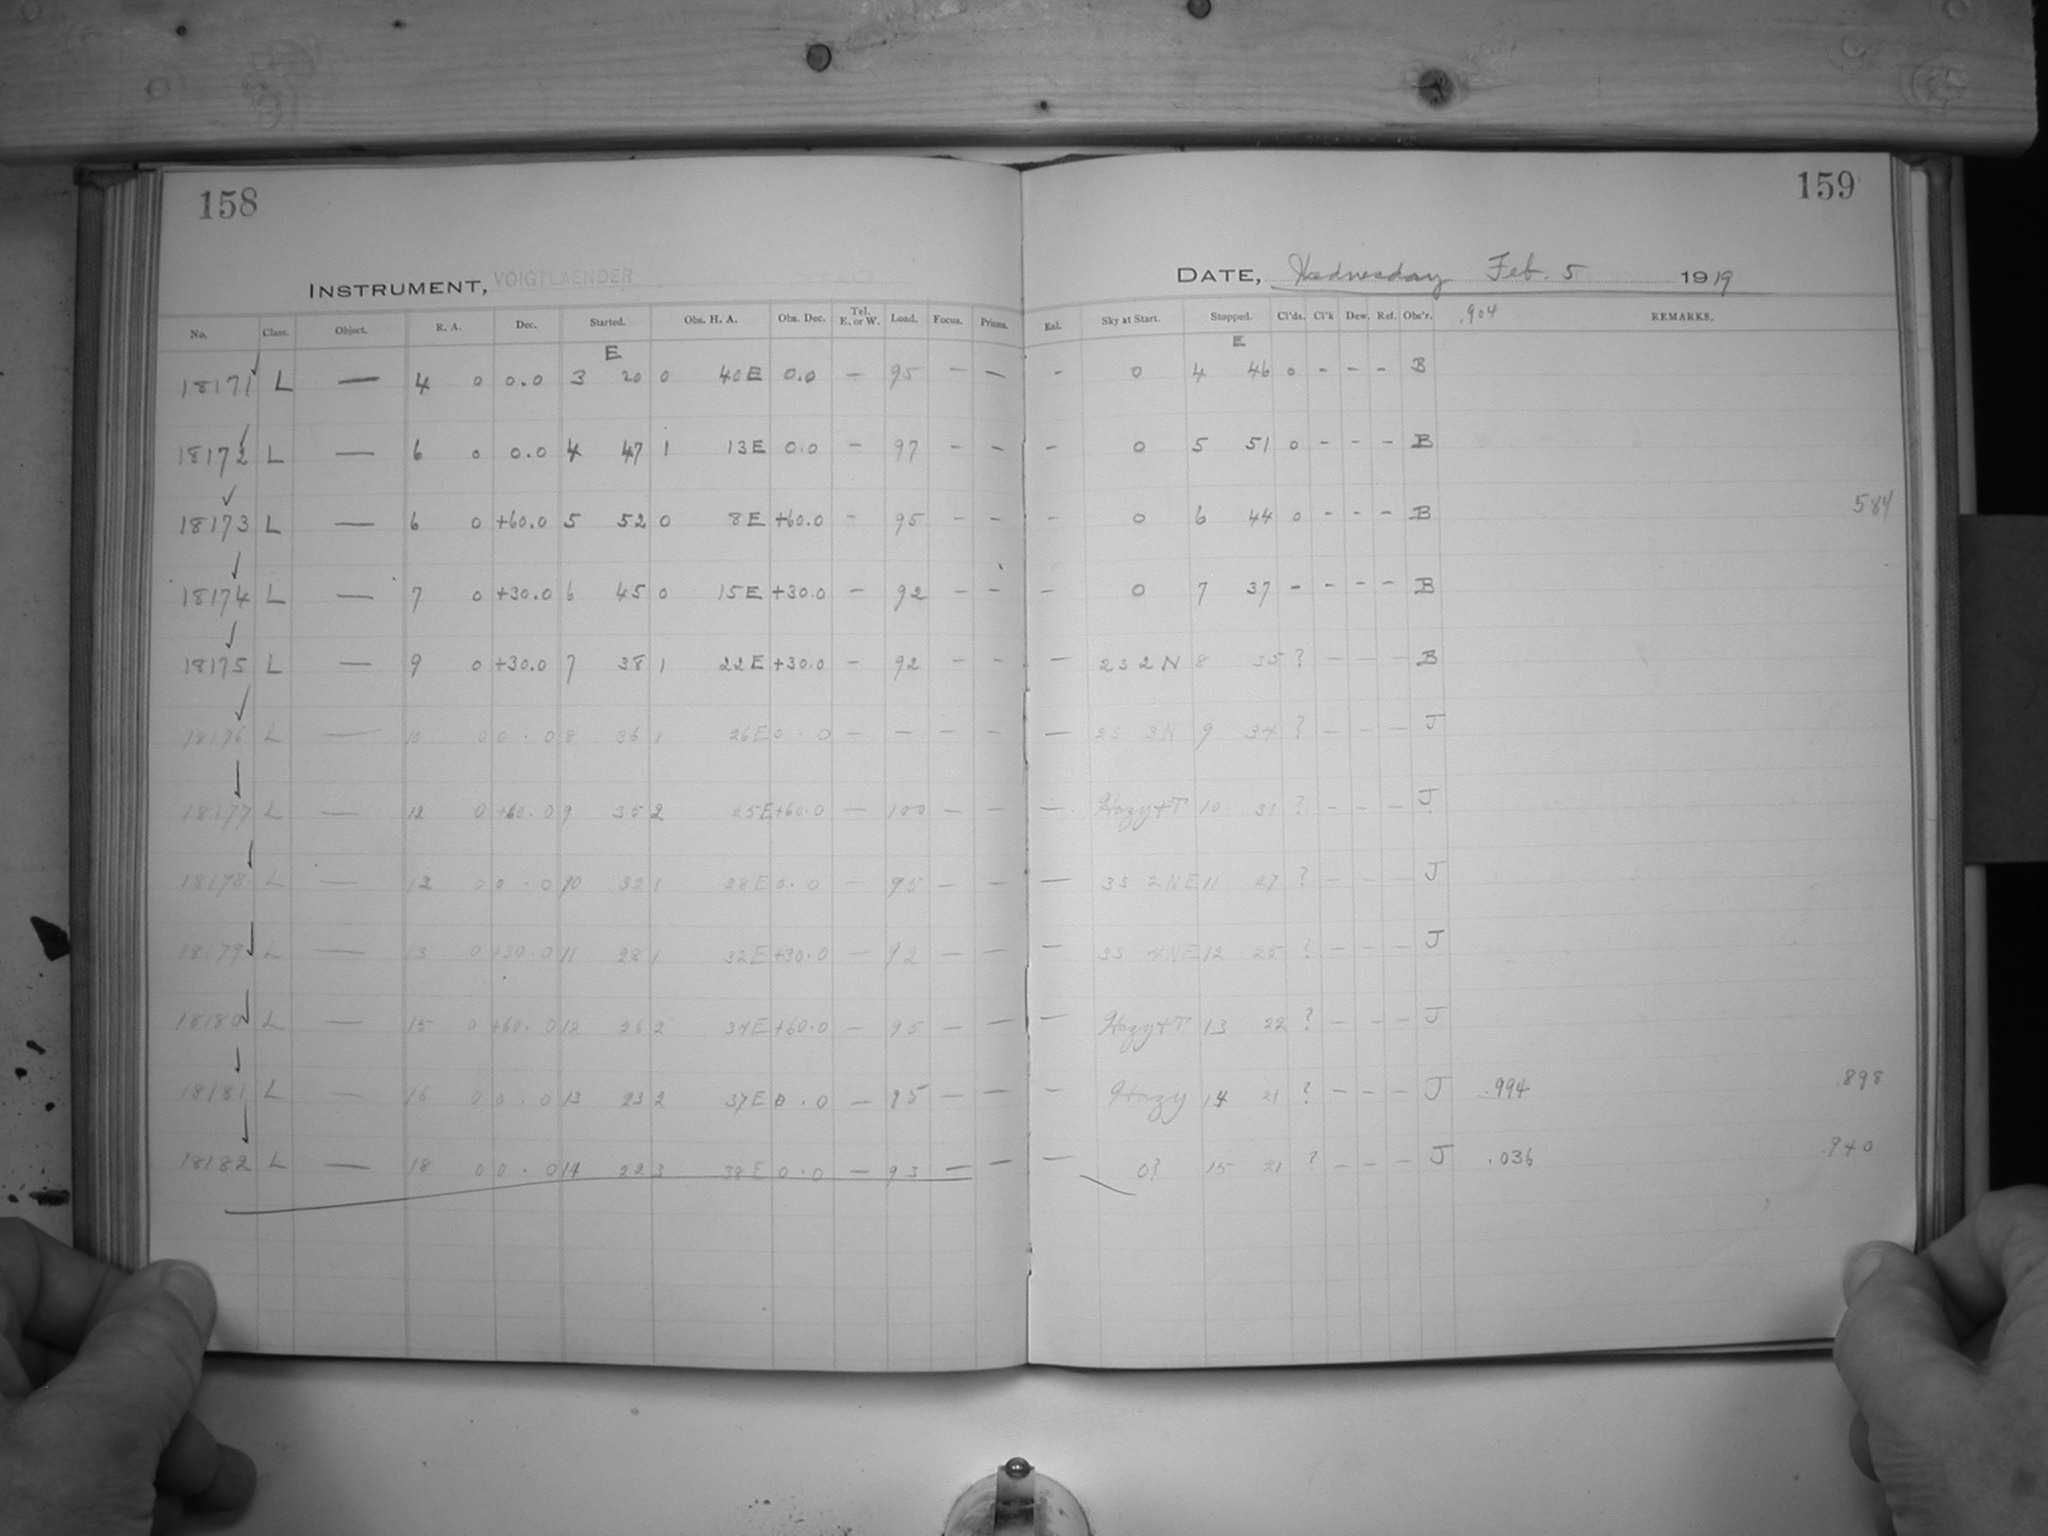 158
159
INSTRUMENT, VOIGTLAENDER
DATE, Wednesday Feb. 5 1919
No. Class. Object. R. A. Dec. Started. Obs. H. A. Obs. Dec. Tel. E. or W. Load. Focus. Prisms. Exl. Sky at Start. Stopped. Cl'ds. Cl'k Dew. Ref. Obs'r. .904 REMARKS.
E E
18171 L — 4 0 0.0 3 20 0 40 E 0.0 — 95 — — - 0 4 46 0 - - - B
18172 L — 6 0 0.0 4 47 1 13 E 0.0 — 97 — — — 0 5 51 0 - - - B
18173 L — 6 0 +60.0 5 52 0 8 E +60.0 - 95 — — — 0 6 44 0 - - - B 584
18174 L — 7 0 +30.0 6 45 0 15 E +30.0 — 92 — — — 0 7 37 - - - - B
18175 L — 9 0 +30.0 7 38 1 22 E +30.0 — 92 — — — 2S 2N 8 35 ? - - - B
18176 L — 10 0 0.0 8 36 1 26 E 0.0 — — — — — 2S 3N 9 34 ? - - - J
18177 L — 12 0 +60.0 9 35 2 25 E +60.0 — 100 — — — Hazy+T 10 31 ? - - - J
18178 L — 12 0 0.0 10 32 1 28 E 0.0 — 95 — — — 3S 2NE 11 27 ? - - - J
18179 L — 13 0 +30.0 11 28 1 32 E +30.0 — 92 — — — 3S 4NE 12 25 ? - - - J
18180 L — 15 0 +60.0 12 26 2 34 E +60.0 — 95 — — — Hazy+T 13 22 ? - - - J
18181 L — 16 0 0.0 13 23 2 37 E 0.0 — 95 — — - Hazy 14 21 ? - - - J .994 .898
18182 L — 18 0 0.0 14 22 3 38 E 0.0 — 93 — — — 0? 15 21 ? - - - J .036 .940